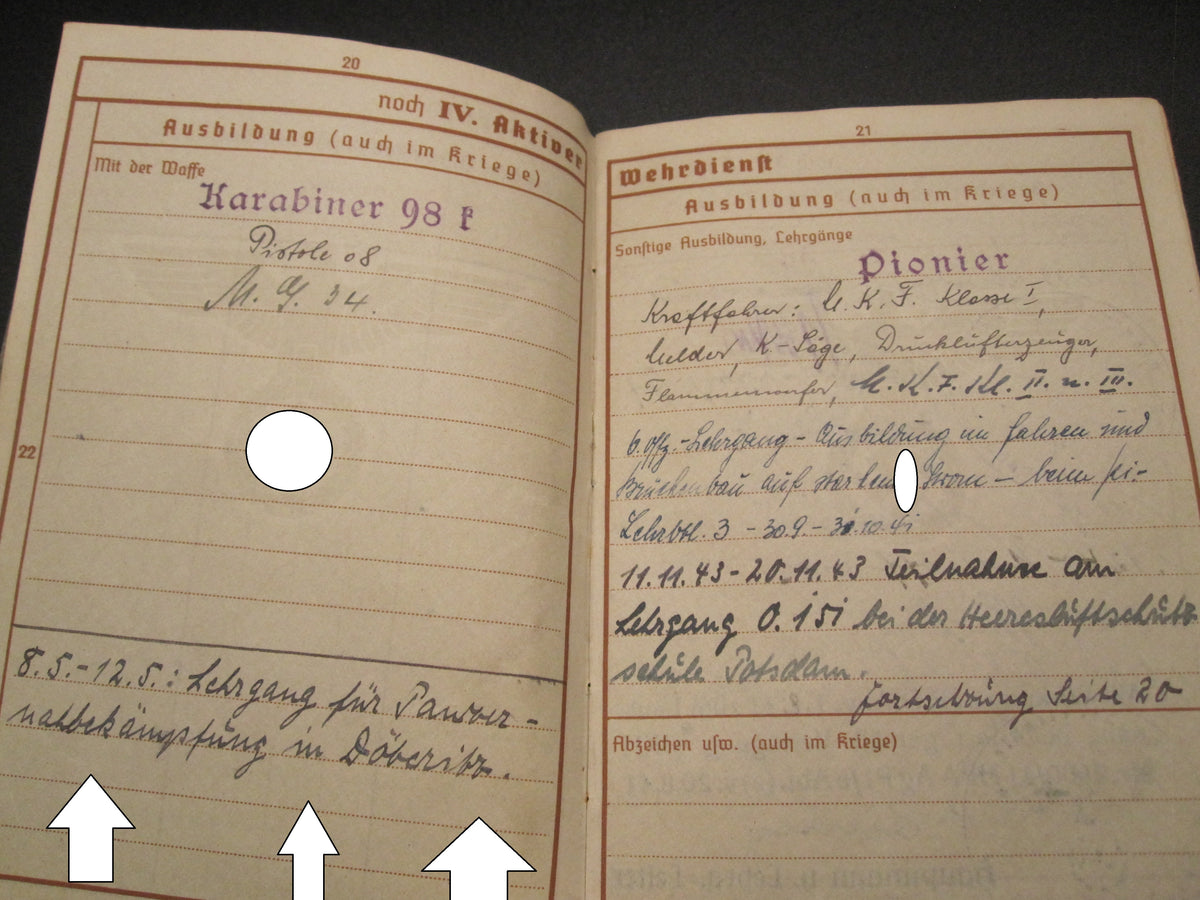 20
noch IV. Aktiver
Ausbildung (auch im Kriege)
Mit der Waffe
Karabiner 98 k
Pistole 08
M. G. 34.
22
8.5.-12.5.: Lehrgang für Panzer-
nahbekämpfung in Döberitz.
21
Wehrdienst
Ausbildung (auch im Kriege)
Sonstige Ausbildung, Lehrgänge
Pionier
Kraftfahrer: M. K. F. Klasse I,
Melder, K-Säge, Drucklufterzeuger,
Flammenwerfer, M. K. F. Kl. II. u. III.
Lehrgang - Ausbildung im fahren und
Brückenbau auf starkem Strom - beim Pi-
Lehrbtl. 3 - 30.9 - 10.41
11.11.43 - 20.11.43 Teilnahme am
Lehrgang O. 151 bei der Heeresluftschutz
schule Potsdam.
Fortsetzung Seite 20
Abzeichen usw. (auch im Kriege)